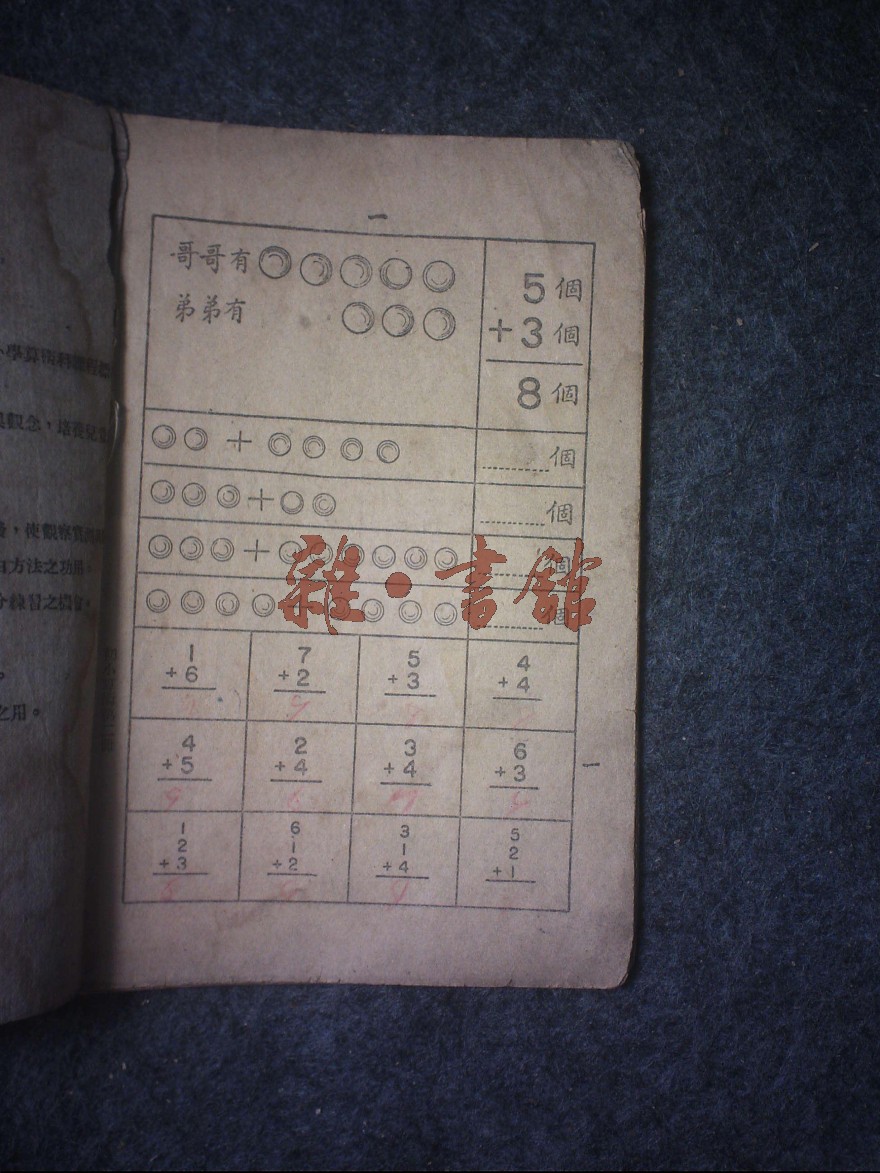 一
哥哥有
弟弟有
5個
+3個
8個
+ 個
+ 個
+ 個
+ 個
雜·書館
1 +6
7 +2
5 +3
4 +4
4 +5
2 +4
3 +4
6 +3
一
1 2 +3
6 1 +2
3 1 +4
5 2 +1
觀念,培養兒
,使觀察實
方法之功用。
練習之機會。
之用。